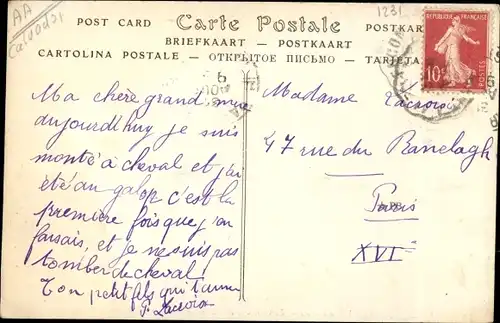 AA
Calvados
1231
POST CARD Carte Postale POSTKARTE
BRIEFKAART — POSTKAART
CARTOLINA POSTALE — ОТКРЫТОЕ ПИСЬМО — TARJETA
RÉPUBLIQUE FRANÇAISE
10c
POSTES
Ma chère grand
aujourdhuy je suis
monté à cheval et j'ai
été au galop c'est la
première fois que j'en
faisais, et je ne suis pas
tomber de cheval
Ton petit fils qui t'aime
P. Lacroix
Madame Lacroix
47 rue du Ranelagh
Paris
XVIe